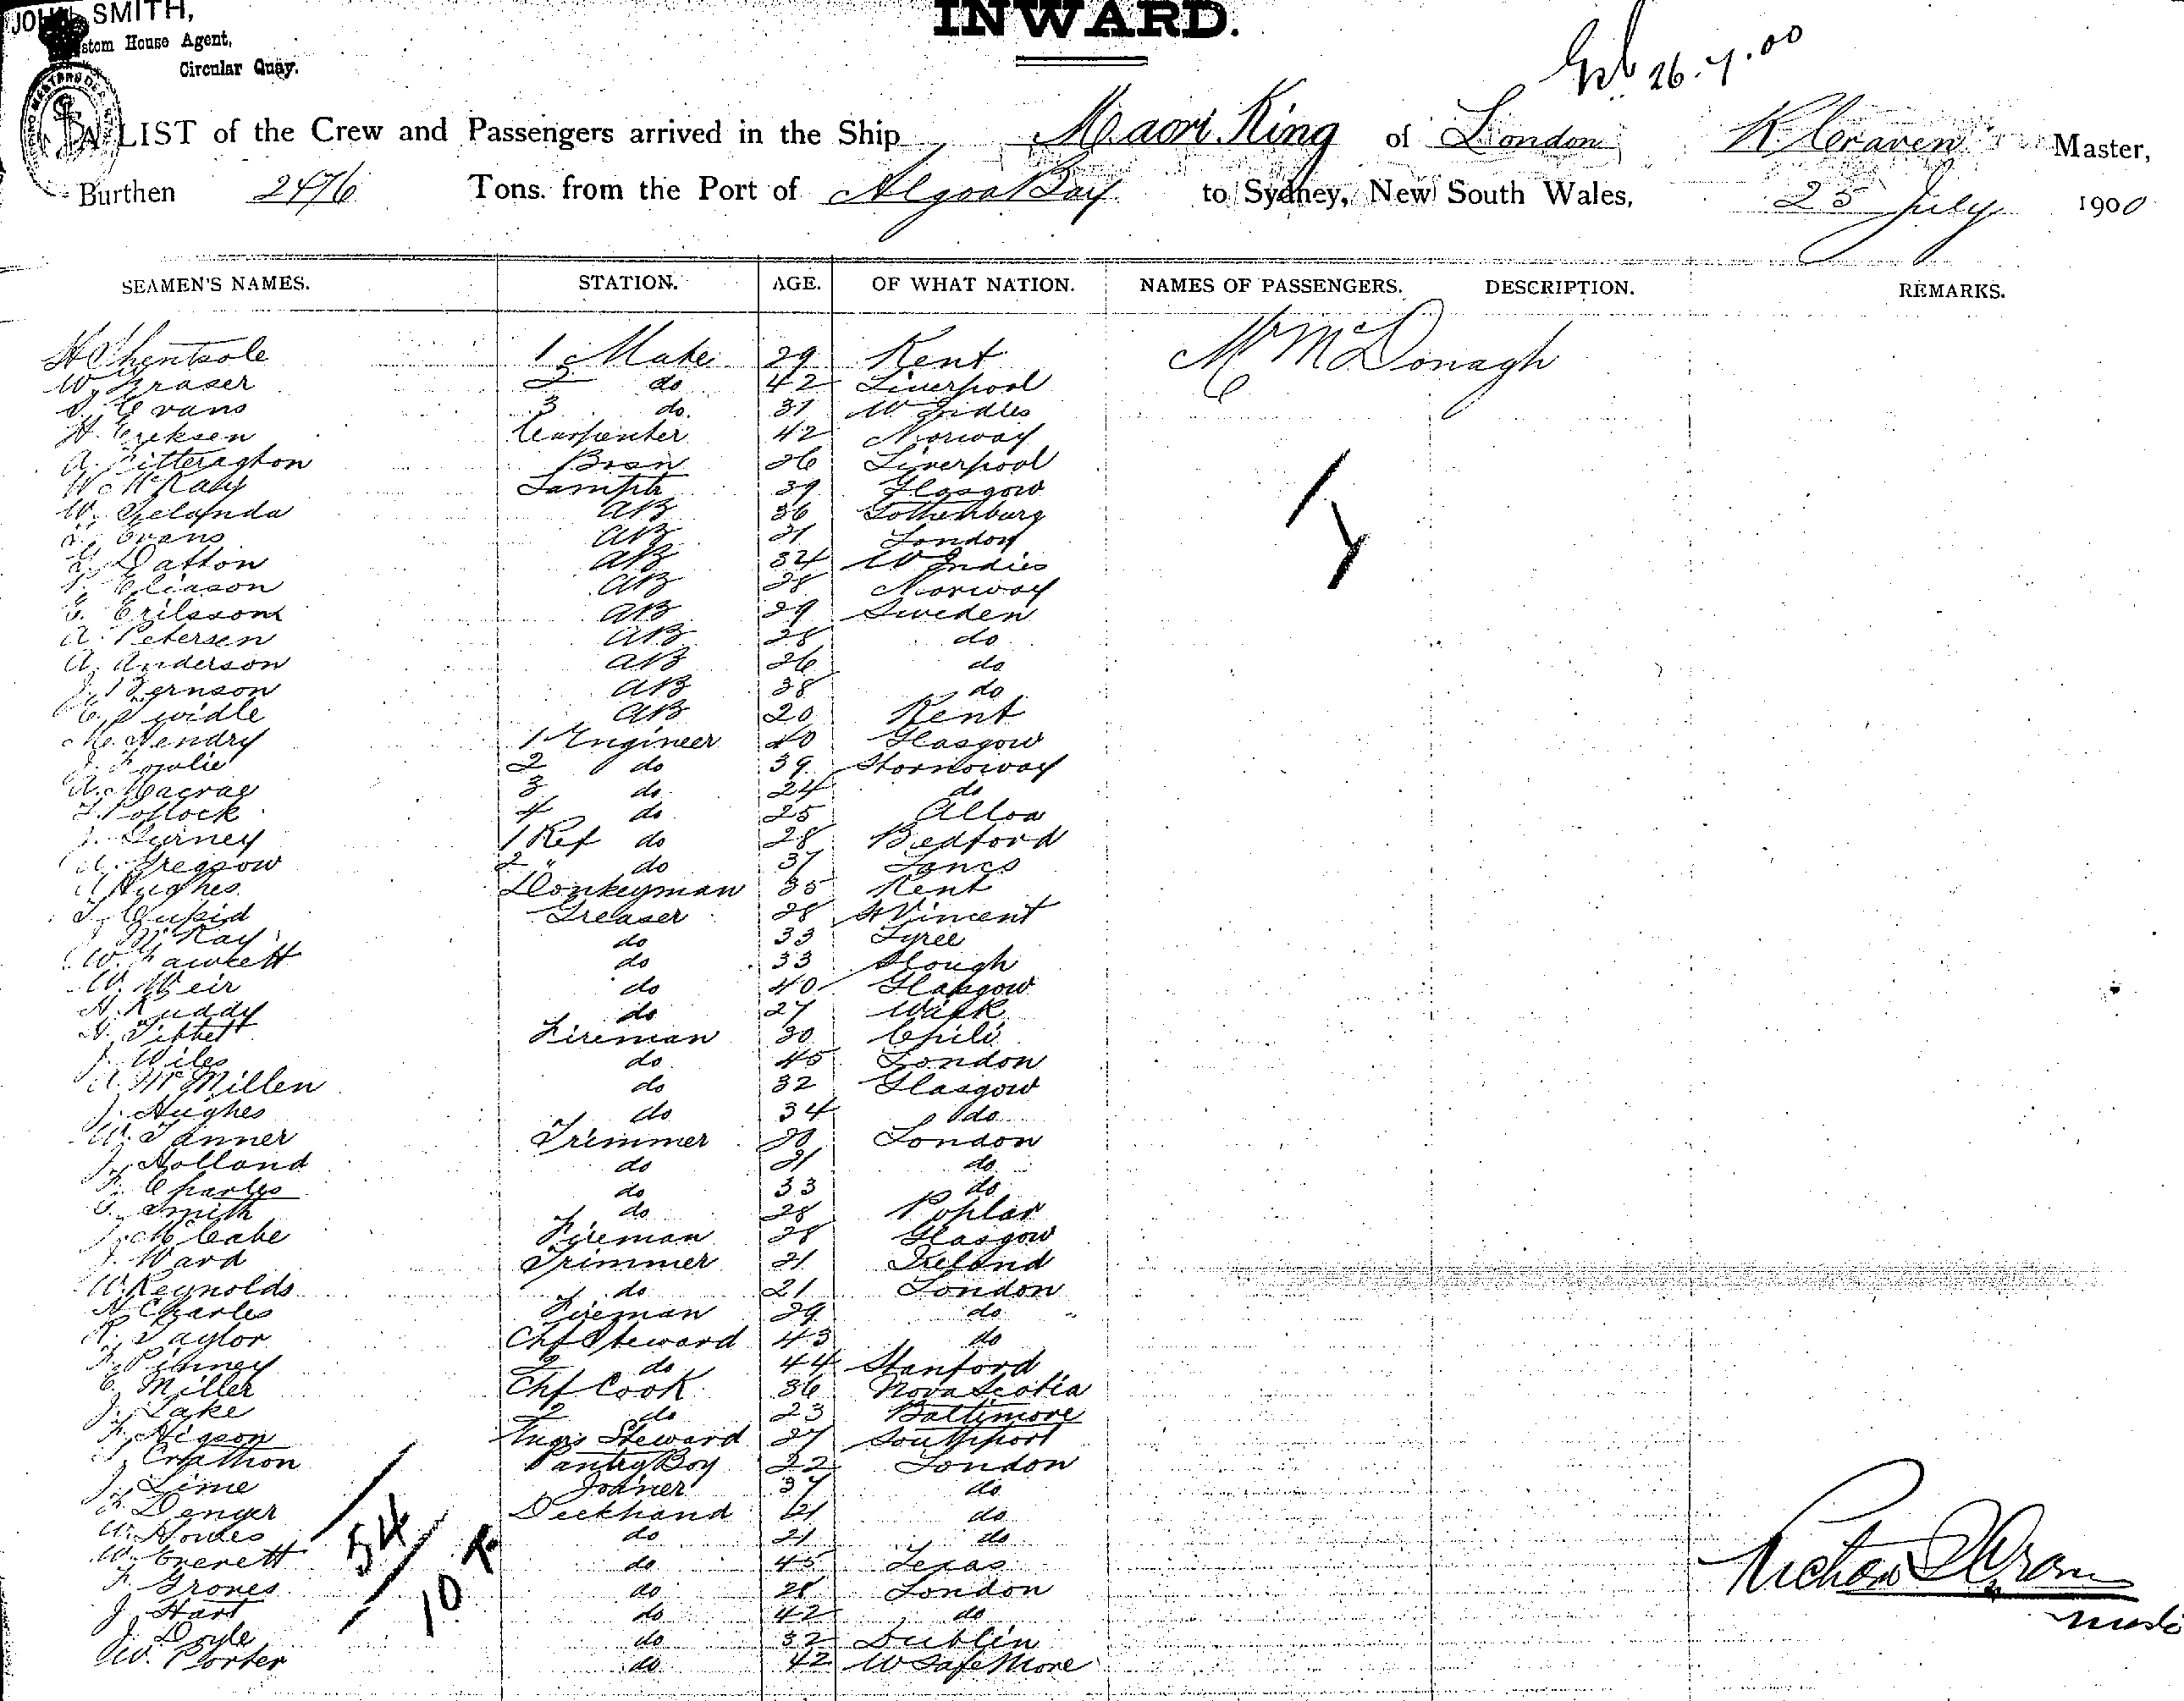 JOHN SMITH,
INWARD.
Custom House Agent,
Circular Quay.
26.7.00
A LIST of the Crew and Passengers arrived in the Ship Maori King of London R. Craven Master,
Burthen 2476 Tons. from the Port of Algoa Bay to Sydney, New South Wales, 25 July 1900
SEAMEN'S NAMES. STATION. AGE. OF WHAT NATION. NAMES OF PASSENGERS. DESCRIPTION. REMARKS.
1 Mate 29 Kent Mr McDonagh
W. Fraser 2 do 42 Liverpool
Evans 3 do. 31 W Indies
H. Eriksen Carpenter 42 Norway
A. 26 Liverpool
W. McKay Lamptr 39 Glasgow
W. AB 36 Gothenburg
Evans AB 21 London
Datton AB 34 W Indies
Eliason AB 28 Norway
AB 29 Sweden
A. Petersen AB 28 do
A. Anderson AB 26 do
J. Bernson AB 38 do
AB 20 Kent
Hendry 1 Engineer 40 Glasgow
2 do 39 Stornoway
A. Macrae 3 do 24 do
T. Pollock 4 do 25 Alloa
J. Gurney 1 Ref do 28 Bedford
2 " do 37 Lancs
A. Hughes Donkeyman 35 Kent
Cupid Greaser 28 St Vincent
McKay do 33 Tyree
W. Fawkett do 33 Slough
W. Weir do 40 Glasgow
H. Ruddy do 27 Wick
Tibbet Fireman 30 Chili
J. Wiles do 45 London
A. McMillen do 32 Glasgow
J. Hughes do 34 do
W. Tanner Trimmer 20 London
J. Holland do 21 do
F. Charles do 33 do
Smith do 28 Poplar
J. McCabe Fireman 28 Glasgow
J. Ward Trimmer 21 Ireland
W. Reynolds do 21 London
H. Charles Fireman 29 do
R. Taylor Chf Steward 43 do
F. Pinney 2 do 44 Stanford
C. Miller Chf Cook 36 Nova Scotia
J. Lake 2 do 23 Baltimore
F. Higson Steward 27 Southport
Pantry Boy 22 London
J. Lime Joiner 37 do
Denyer Deckhand 21 do
W. Howes do 21 do
W. Everett do 45 Texas
F. Groves do 28 London
J. Hart do 42 do
J. Doyle do 32 Dublin
W. Porter do 42
54
10